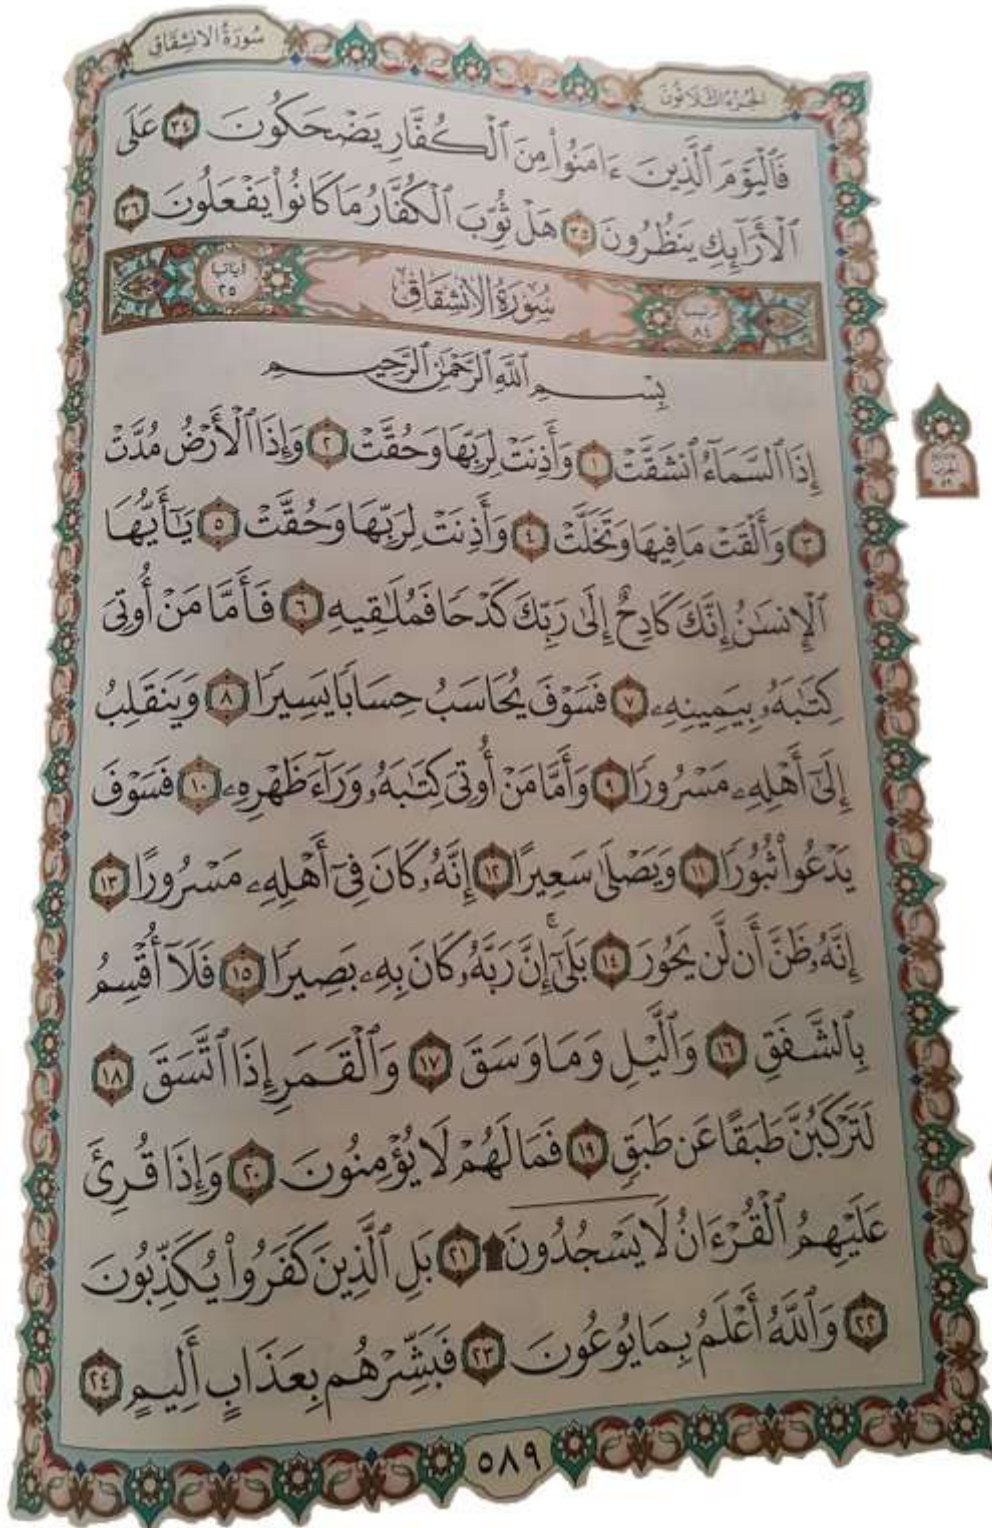 سُورَةُ الانشِقَاقِ
الجُزْءُ الثَّلَاثُونَ
فَٱلْيَوْمَ ٱلَّذِينَ ءَامَنُوا۟ مِنَ ٱلْكُفَّارِ يَضْحَكُونَ ٣٤ عَلَى
ٱلْأَرَآئِكِ يَنظُرُونَ ٣٥ هَلْ ثُوِّبَ ٱلْكُفَّارُ مَا كَانُوا۟ يَفْعَلُونَ ٣٦
ترتيبها ٨٤ سُورَةُ الانشِقَاقِ آياتها ٢٥
بِسْمِ ٱللَّهِ ٱلرَّحْمَٰنِ ٱلرَّحِيمِ
إِذَا ٱلسَّمَآءُ ٱنشَقَّتْ ١ وَأَذِنَتْ لِرَبِّهَا وَحُقَّتْ ٢ وَإِذَا ٱلْأَرْضُ مُدَّتْ
٣ وَأَلْقَتْ مَا فِيهَا وَتَخَلَّتْ ٤ وَأَذِنَتْ لِرَبِّهَا وَحُقَّتْ ٥ يَٰٓأَيُّهَا
ٱلْإِنسَٰنُ إِنَّكَ كَادِحٌ إِلَىٰ رَبِّكَ كَدْحًا فَمُلَٰقِيهِ ٦ فَأَمَّا مَنْ أُوتِىَ
كِتَٰبَهُۥ بِيَمِينِهِۦ ٧ فَسَوْفَ يُحَاسَبُ حِسَابًا يَسِيرًا ٨ وَيَنقَلِبُ
إِلَىٰٓ أَهْلِهِۦ مَسْرُورًا ٩ وَأَمَّا مَنْ أُوتِىَ كِتَٰبَهُۥ وَرَآءَ ظَهْرِهِۦ ١٠ فَسَوْفَ
يَدْعُوا۟ ثُبُورًا ١١ وَيَصْلَىٰ سَعِيرًا ١٢ إِنَّهُۥ كَانَ فِىٓ أَهْلِهِۦ مَسْرُورًا ١٣
إِنَّهُۥ ظَنَّ أَن لَّن يَحُورَ ١٤ بَلَىٰٓ إِنَّ رَبَّهُۥ كَانَ بِهِۦ بَصِيرًا ١٥ فَلَآ أُقْسِمُ
بِٱلشَّفَقِ ١٦ وَٱلَّيْلِ وَمَا وَسَقَ ١٧ وَٱلْقَمَرِ إِذَا ٱتَّسَقَ ١٨
لَتَرْكَبُنَّ طَبَقًا عَن طَبَقٍ ١٩ فَمَا لَهُمْ لَا يُؤْمِنُونَ ٢٠ وَإِذَا قُرِئَ
عَلَيْهِمُ ٱلْقُرْءَانُ لَا يَسْجُدُونَ ۩ ٢١ بَلِ ٱلَّذِينَ كَفَرُوا۟ يُكَذِّبُونَ
٢٢ وَٱللَّهُ أَعْلَمُ بِمَا يُوعُونَ ٢٣ فَبَشِّرْهُم بِعَذَابٍ أَلِيمٍ ٢٤
٥٨٩